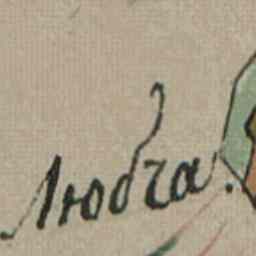 Любча.